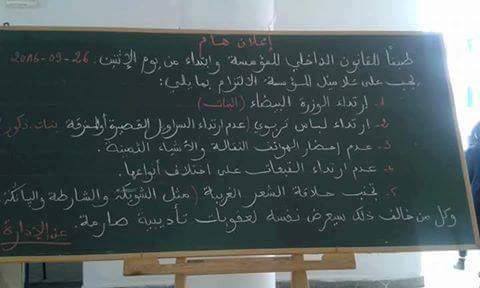 إعلان هام
طبقاً للقانون الداخلي للمؤسسة وابتداء من يوم الإثنين 26-09-2016
يجب على تلاميذ المؤسسة الالتزام بما يلي:
1. ارتداء الوزرة البيضاء (البنات)
2. ارتداء لباس تربوي (عدم ارتداء السراويل القصيرة أو الممزقة بنات، ذكور)
3. عدم إحضار الهواتف النقالة والأشياء الثمينة.
4. عدم ارتداء القبعات على اختلاف أنواعها.
5. تجنب حلاقة الشعر الغريبة (مثل الشويكة والشارطة والبانكة
وكل من خالف ذلك سيعرض نفسه لعقوبات تأديبية صارمة.
عن الإدارة